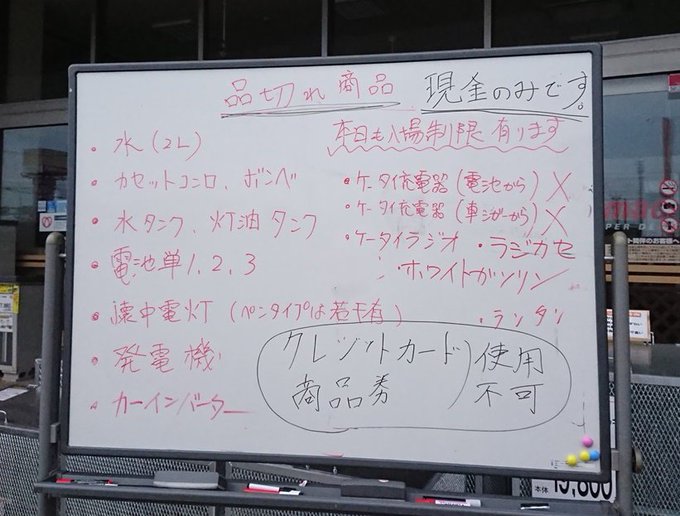 品切れ商品
現金のみです。
本日も入場制限有ります
・水(2L)
・カセットコンロ、ボンベ
・水タンク、灯油タンク
・電池単1、2、3
・懐中電灯(ペンタイプは若干有)
・発電機
・カーインバーター
・ケータイ充電器(電池から)×
・ケータイ充電器(車シガーから)×
・ケータイラジオ ・ラジカセ
・ホワイトガソリン
・ランタン
クレジットカード
商品券
使用
不可
本体